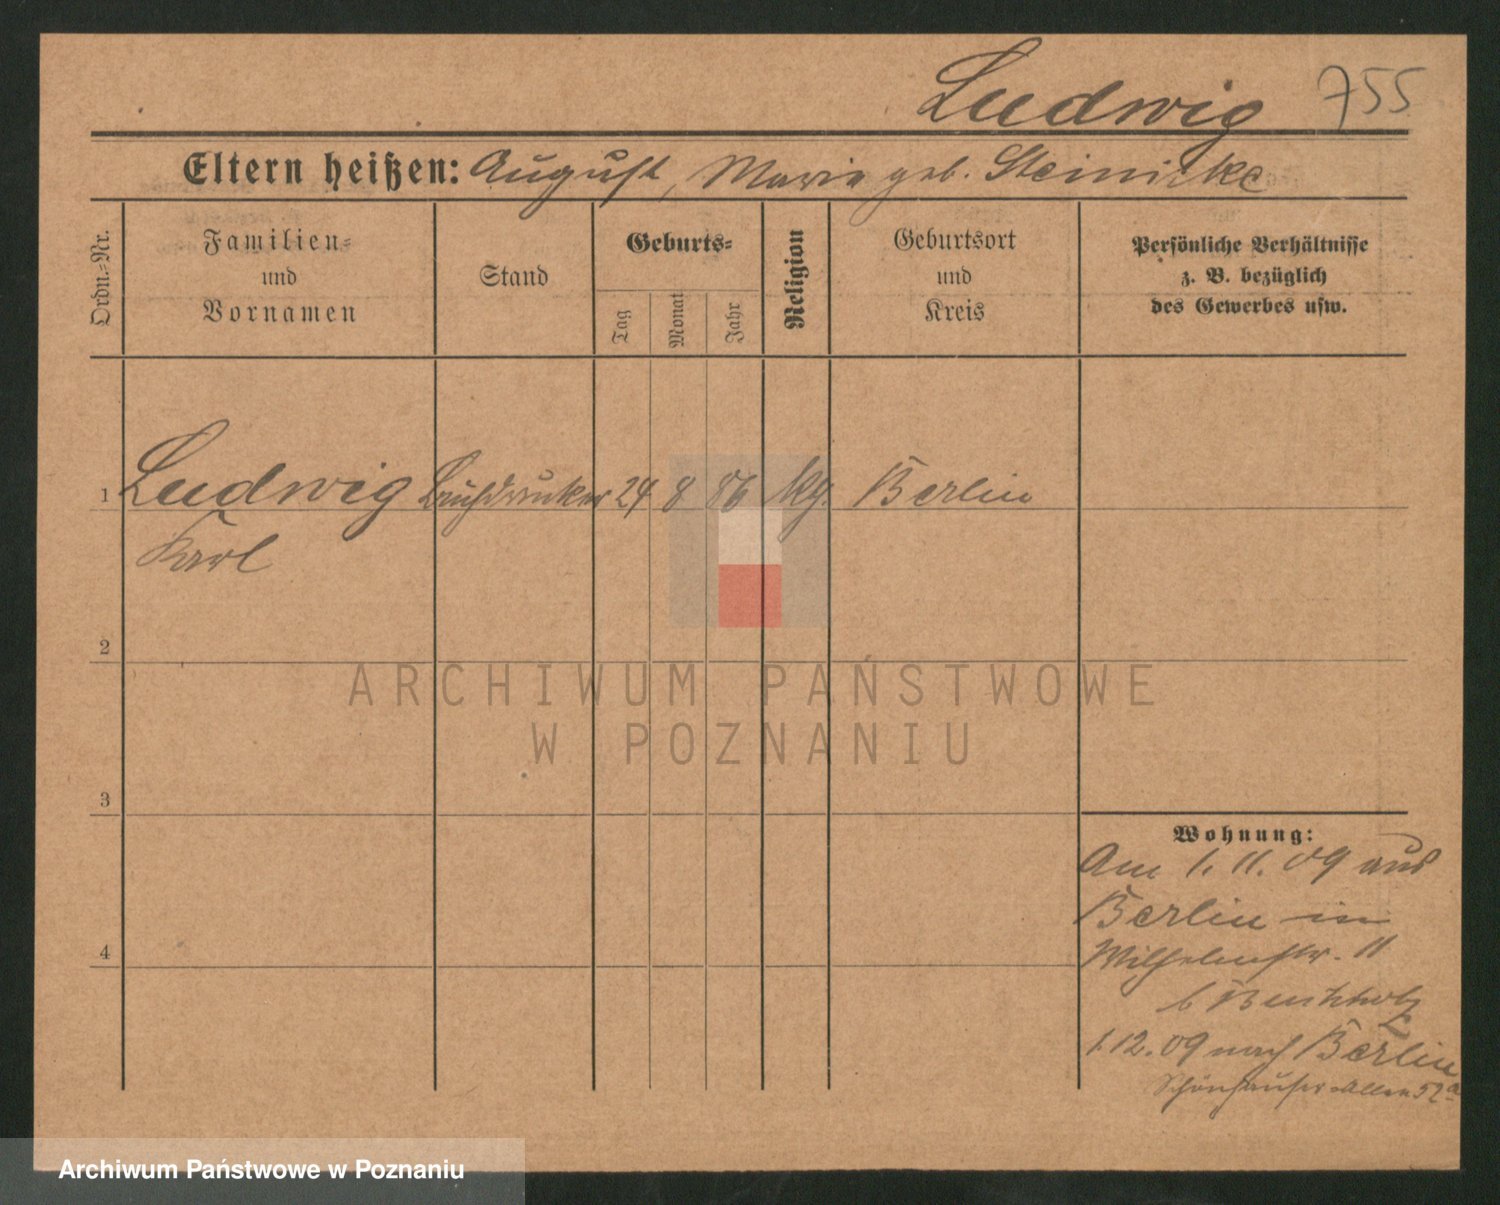 Ludwig 755
Eltern heißen: August, Marie geb. Steinicke
Ordn.-Nr.
Familien-
und
Vornamen
Stand
Geburts-
Tag
Monat
Jahr
Religion
Geburtsort
und
Kreis
Persönliche Verhältnisse
z. B. bezüglich
des Gewerbes usw.
1 Ludwig Buchdrucker 24 8 86 Berlin
Karl
2
3
4
Wohnung:
Am 1. 11. 09 aus
Berlin in
Wilhelmstr. 11
b Buchholz
1.12.09 nach Berlin
Schönhauser Allee 52a
ARCHIWUM PAŃSTWOWE
W POZNANIU
Archiwum Państwowe w Poznaniu